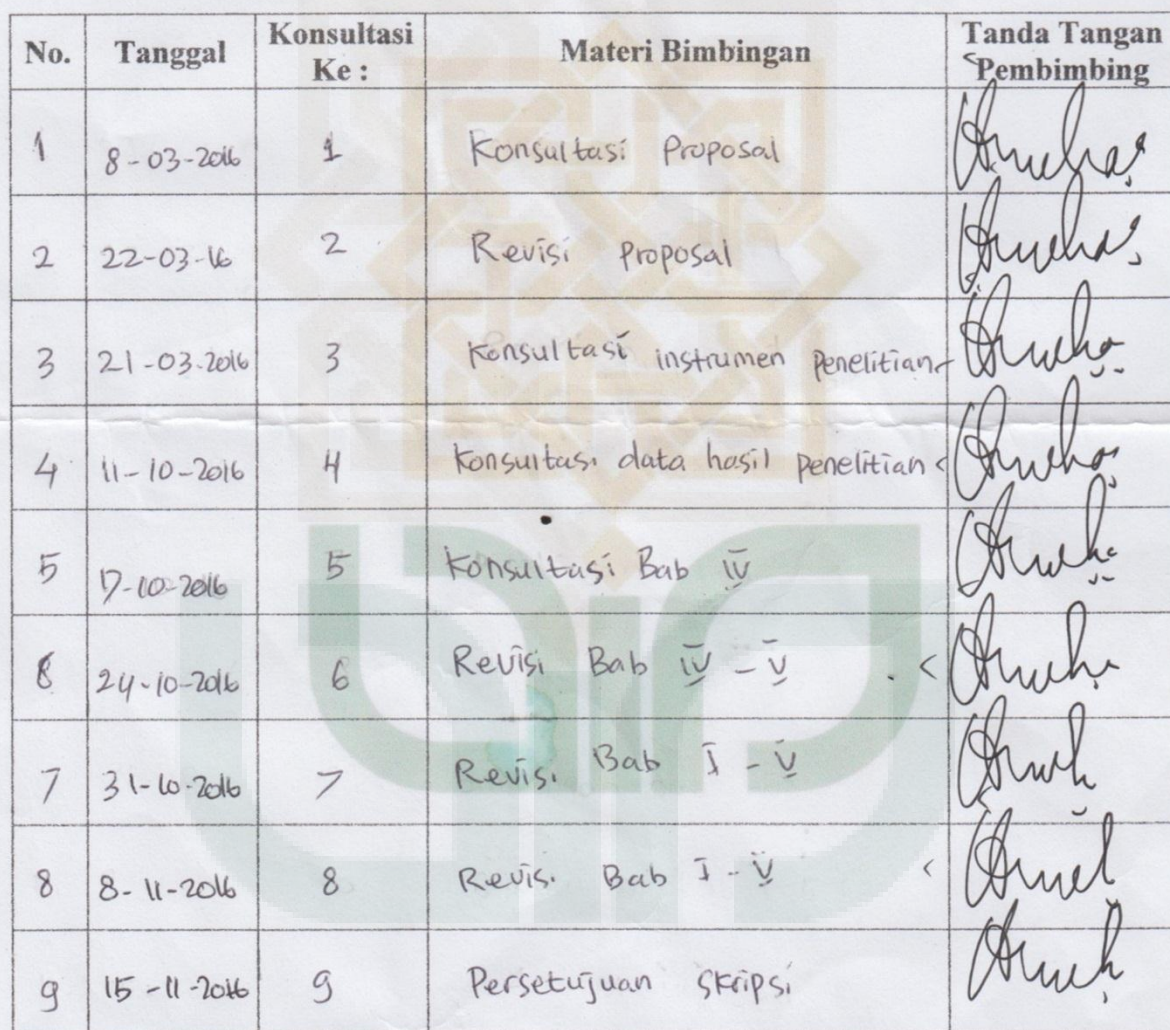 No. Tanggal Konsultasi Ke : Materi Bimbingan Tanda Tangan Pembimbing
1 8-03-2016 1 Konsultasi Proposal
2 22-03-16 2 Revisi Proposal
3 21-03-2016 3 Konsultasi instrumen Penelitian
4 11-10-2016 4 Konsultasi data hasil penelitian
5 17-10-2016 5 Konsultasi Bab IV
6 24-10-2016 6 Revisi Bab IV - V
7 31-10-2016 7 Revisi Bab I - V
8 8-11-2016 8 Revisi Bab I - V
9 15-11-2016 9 Persetujuan Skripsi